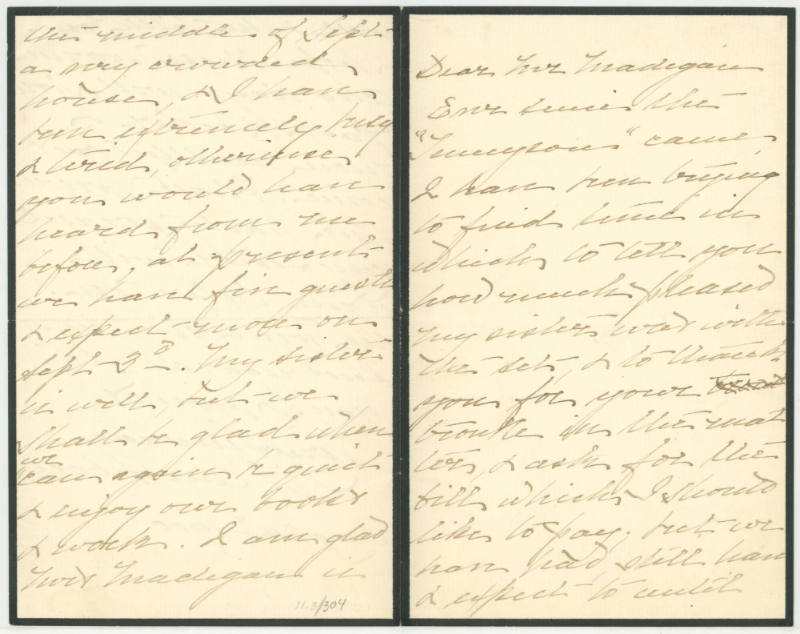 Dear Mr Madigan
Ever since the
"Tennyson" came,
I have been trying
to find time in
which to tell you
how much pleased
my sister was with
the set, & to thank
you for your
trouble in the mat
ter, & ask for the
bill which I should
like to pay. but we
have had, still have
& expect to until
the middle of Sept
a very crowded
house, & I have
been extremely busy
& tired, otherwise
you would have
heard from me
before, at present
we have five guests
& expect more on
Sept 3d. My sister
is well, but we
shall be glad when
we
can again be quiet
& enjoy our books
& work. I am glad
Mrs Madigan is
11.3/304